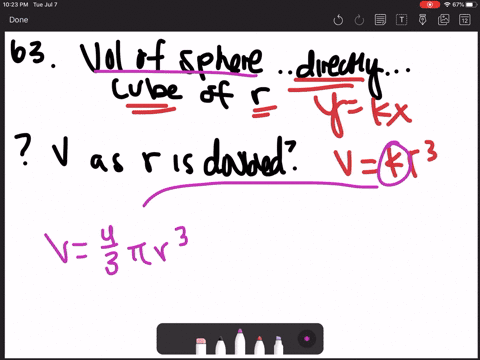 10:23 PM Tue Jul 7
67%
Done
63. Vol of sphere ..directly...
cube of r
y=kx
? V as r is doubled?
V=kr³
V=4/3 πr³